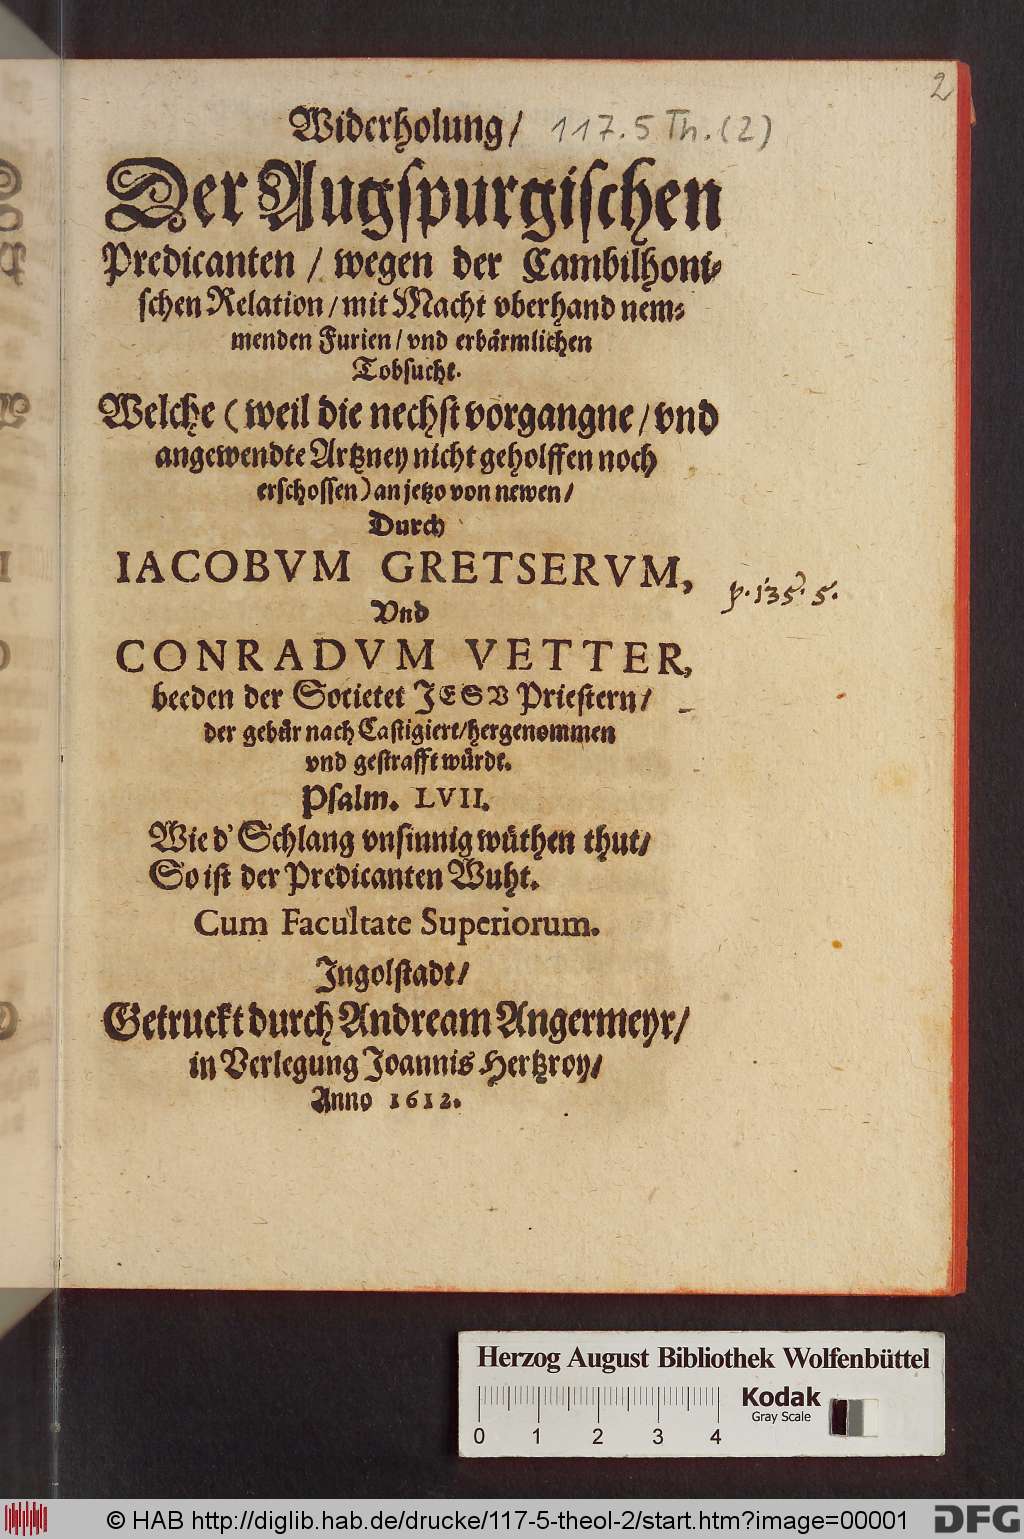 2
Widerholung/ 117.5 Th. (2)
Der Augspurgischen
Predicanten / wegen der Cambilhoni⸗
schen Relation / mit Macht vberhand nem⸗
menden Furien / vnd erbärmlichen
Tobsucht.
Welche ( weil die nechst vorgangne / vnd
angewendte Artzney nicht geholffen noch
erschossen) an jetzo von newen /
Durch
IACOBVM GRETSERVM,
p. 135. 5.
Vnd
CONRADVM VETTER,
beeden der Societet JESV Priestern /
der gebür nach Castigiert / hergenommen
vnd gestrafft würdt.
Psalm. LVII.
Wie d' Schlang vnsinnig wüthen thut /
So ist der Predicanten Wuht.
Cum Facultate Superiorum.
Ingolstadt /
Getruckt durch Andream Angermeyr /
in Verlegung Joannis Hertzroy /
Anno 1612.
Herzog August Bibliothek Wolfenbüttel
Kodak
Gray Scale
0 1 2 3 4
© HAB http://diglib.hab.de/drucke/117-5-theol-2/start.htm?image=00001
DFG